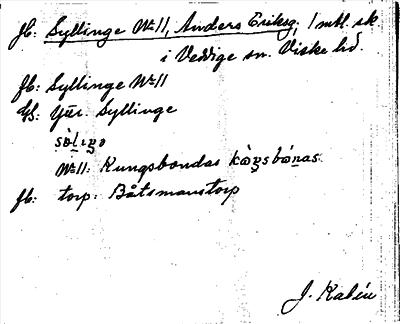 Jb: Syllinge No 11, Anders Eriksg. 1 mtl. sk
i Veddige sn. Viske hd.
Jb: Syllinge No 11
GS: Yttr. Syllinge
No 11: Kungsbondas
Jb: torp: Båtsmanstorp
J. Kalén